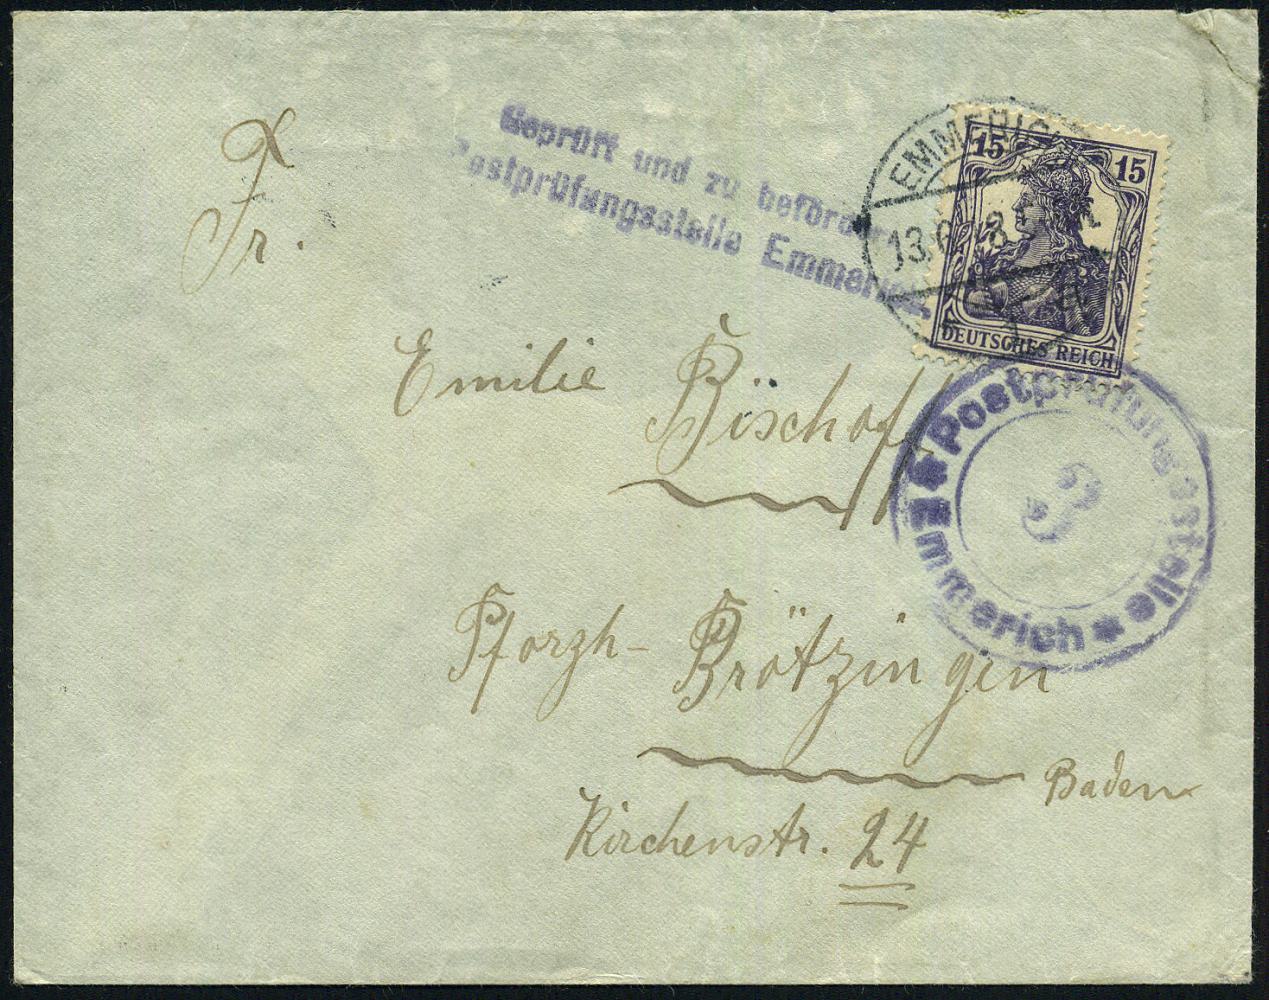 Geprüft und zu befördern
Postprüfungsstelle Emmerich.
EMMERICH
13.6.18
15 15
DEUTSCHES REICH
Fr.
Emilie Bischoff
* Postprüfungsstelle * Emmerich
3
Pforzh- Brötzingen
Baden
Kirchenstr. 24